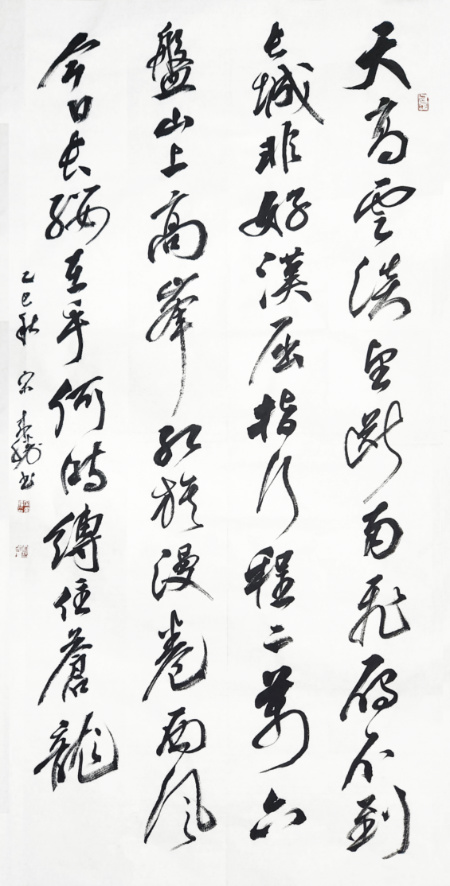 天高雲淡望斷南飛雁不到
長城非好漢屈指行程二萬六
盤山上高峯紅旗漫卷西風
今日長纓在手何時縛住蒼龍
乙巳秋 宋 書